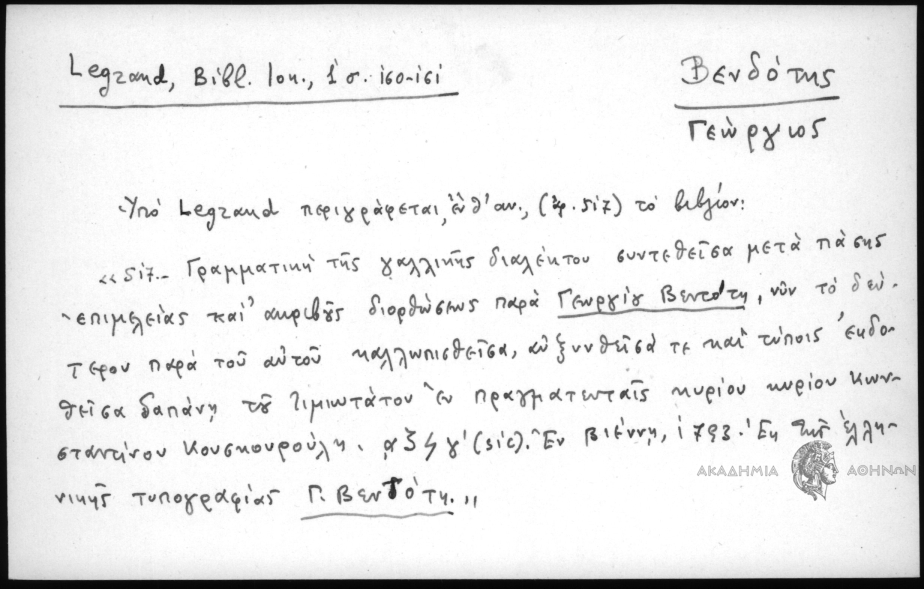 Legrand, Βιβλ. Ιον., 1 σ. 150-151
Βενδότης
Γεώργιος
Ὑπό Legrand περιγράφεται, ἐνθ' αν., (ἀρ. 517) τό βιβλίον:
«517.- Γραμματική τῆς γαλλικῆς διαλέκτου συντεθεῖσα μετά πάσης
ἐπιμελείας καί ἀκριβοῦς διορθώσεως παρά Γεωργίου Βεντότη, νῦν τό δεύ-
τερον παρά τοῦ αὐτοῦ καλλωπισθεῖσα, αὐξυνθεῖσά τε καί τύποις ἐκδο-
θεῖσα δαπάνῃ τοῦ τιμιωτάτου ἐν πραγματευταῖς κυρίου κυρίου Κων-
σταντίνου Κουσκουρούλη. (sic). Ἐν Βιέννῃ, 1793. Ἐκ τῆς ἑλλη-
νικῆς τυπογραφίας Γ. Βεντότη.»
ΑΚΑΔΗΜΙΑ ΑΘΗΝΩΝ